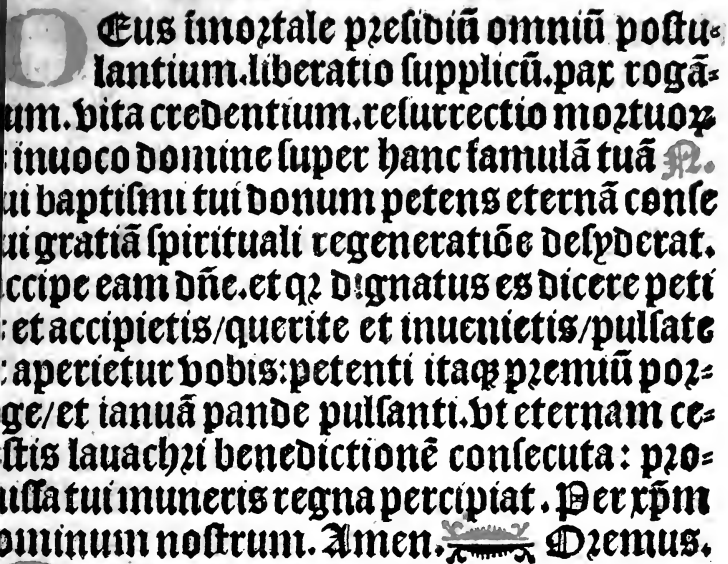 DEus ı̃mortale presidiū omniū postu-
lantium.liberatio supplicū.pax rogā-
um.vita credentium.resurrectio mortuoꝝ
inuoco domine super hanc famulā tuā N.
ui baptismi tui donum petens eternā conse
ui gratiā spirituali regeneratiōe desyderat.
ccipe eam dñe.et qꝛ dignatus es dicere peti
: et accipietis/querite et inuenietis/pulsate
: aperietur vobis:petenti itaqꝫ premiū por-
ge/et ianuā pande pulsanti.vt eternam ce-
stis lauachri benedictionē consecuta: pro-
issa tui muneris regna percipiat. Per xp̄m
ominum nostrum. Amen. Oremus.